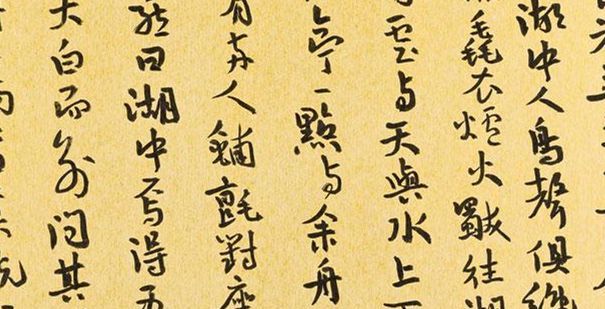 湖中人鳥聲俱絕
毳衣爐火獨往湖
雲与天與水上
亭一點与余舟
有兩人鋪氈對座
曰湖中焉得
大白而別問其